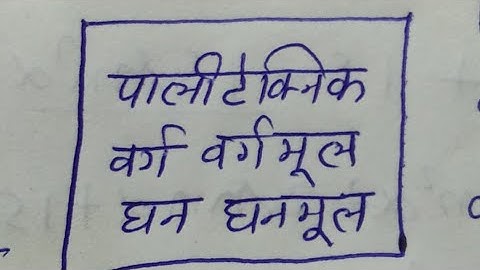 पालीटेक्निक
वर्ग वर्गमूल
घन घनमूल